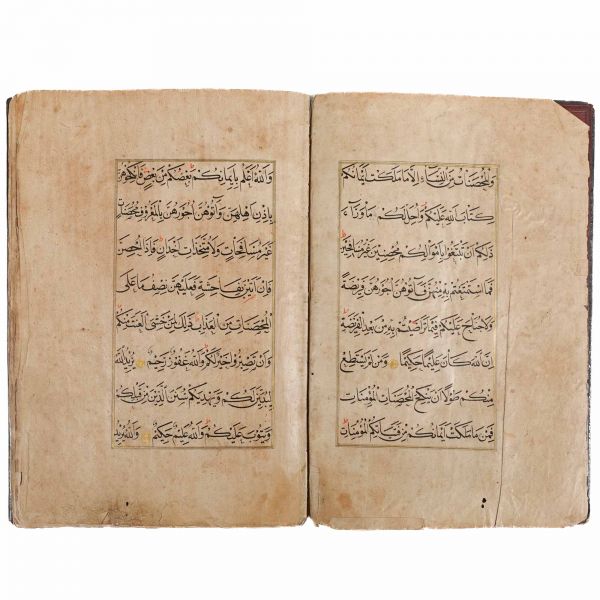 وَالْمُحْصَنَاتُ مِنَ النِّسَاءِ اِلَّا مَا مَلَكَتْ اَيْمَانُكُمْ
كِتَابَ اللهِ عَلَيْكُمْ وَاُحِلَّ لَكُمْ مَا وَرَاءَ
ذٰلِكُمْ اَنْ تَبْتَغُوا بِاَمْوَالِكُمْ مُحْصِنِينَ غَيْرَ مُسَافِحِينَ
فَمَا اسْتَمْتَعْتُمْ بِهِ مِنْهُنَّ فَآتُوهُنَّ اُجُورَهُنَّ فَرِيضَةً
وَلَا جُنَاحَ عَلَيْكُمْ فِيمَا تَرَاضَيْتُمْ بِهِ مِنْ بَعْدِ الْفَرِيضَةِ
اِنَّ اللهَ كَانَ عَلِيمًا حَكِيمًا وَمَنْ لَمْ يَسْتَطِعْ
مِنْكُمْ طَوْلًا اَنْ يَنْكِحَ الْمُحْصَنَاتِ الْمُؤْمِنَاتِ
فَمِنْ مَا مَلَكَتْ اَيْمَانُكُمْ مِنْ فَتَيَاتِكُمُ الْمُؤْمِنَاتِ
وَاللهُ اَعْلَمُ بِاِيمَانِكُمْ بَعْضُكُمْ مِنْ بَعْضٍ فَانْكِحُوهُنَّ
بِاِذْنِ اَهْلِهِنَّ وَآتُوهُنَّ اُجُورَهُنَّ بِالْمَعْرُوفِ مُحْصَنَاتٍ
غَيْرَ مُسَافِحَاتٍ وَلَا مُتَّخِذَاتِ اَخْدَانٍ فَاِذَا اُحْصِنَّ
فَاِنْ اَتَيْنَ بِفَاحِشَةٍ فَعَلَيْهِنَّ نِصْفُ مَا عَلَى
الْمُحْصَنَاتِ مِنَ الْعَذَابِ ذٰلِكَ لِمَنْ خَشِيَ الْعَنَتَ مِنْكُمْ
وَاَنْ تَصْبِرُوا خَيْرٌ لَكُمْ وَاللهُ غَفُورٌ رَحِيمٌ يُرِيدُ اللهُ
لِيُبَيِّنَ لَكُمْ وَيَهْدِيَكُمْ سُنَنَ الَّذِينَ مِنْ قَبْلِكُمْ
وَيَتُوبَ عَلَيْكُمْ وَاللهُ عَلِيمٌ حَكِيمٌ وَاللهُ يُرِيدُ